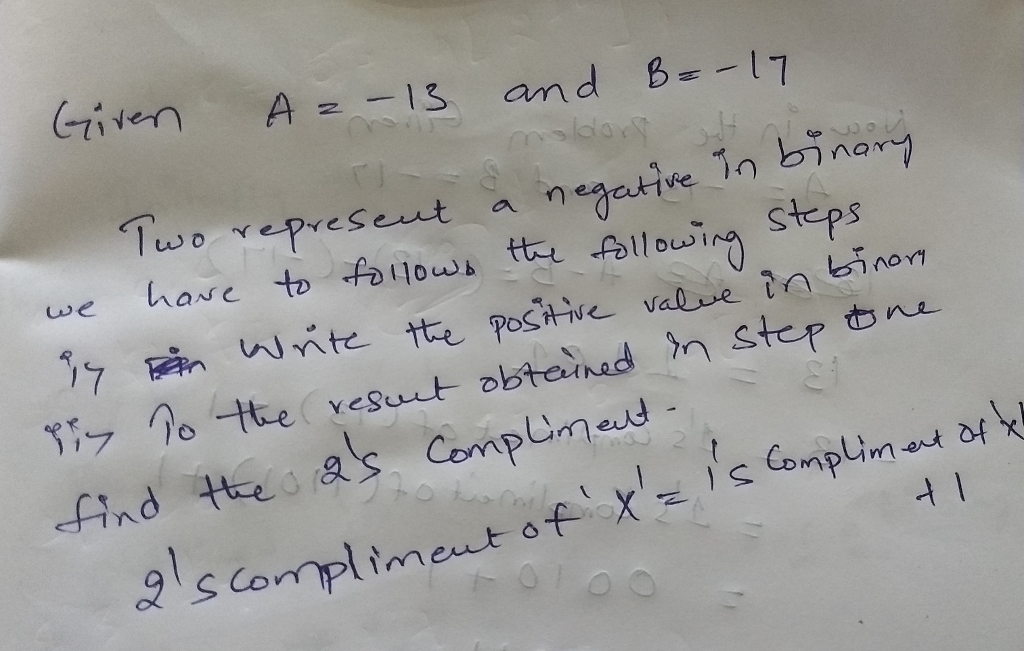 Given A = -13 and B = -17
Two represent a negative in binary
we have to follows the following steps
i> Write the positive value in binary
ii> To the result obtained in step one
find the 2's Compliment.
2's compliment of 'x' = 1's Compliment of 'x'
+1